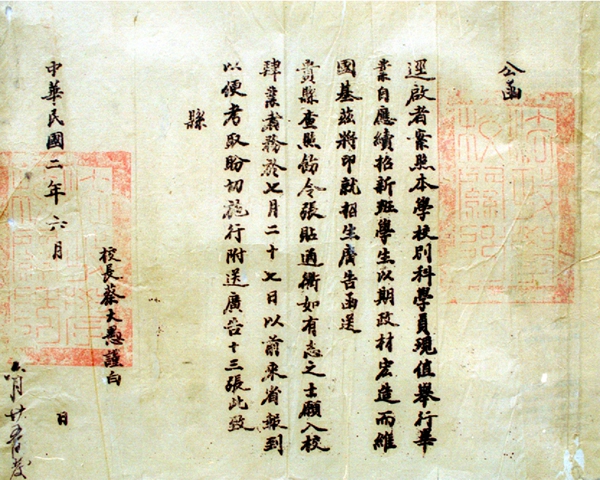 公函
逕啟者案照本學校別科學員現值舉行畢
業自應續招新班學生以期政材宏造而維
國基茲將印就招生廣告函送
貴縣查照飭令張貼通衢如有志之士願入校
肄業者務於七月二十七日以前來省報到
以便考取盼切施行附送廣告十三張此致
縣
校長蔡大愚謹白
中華民國二年六月 日
六月廿